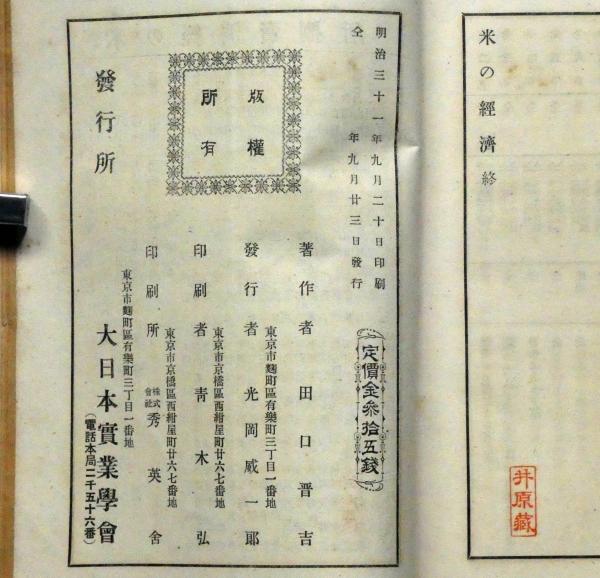 米の經濟終
井原藏
明治三十一年九月二十日印刷
仝 年九月廿三日發行
版權
所有
定價金參拾五錢
著作者 田口晋吉
東京市麴町區有樂町三丁目一番地
發行者 光岡威一郎
東京市京橋區西紺屋町廿六七番地
印刷者 青木弘
東京市京橋區西紺屋町廿六七番地
印刷所 株式會社 秀英舍
發行所
東京市麴町區有樂町三丁目一番地
大日本實業學會
(電話本局二千五十六番)